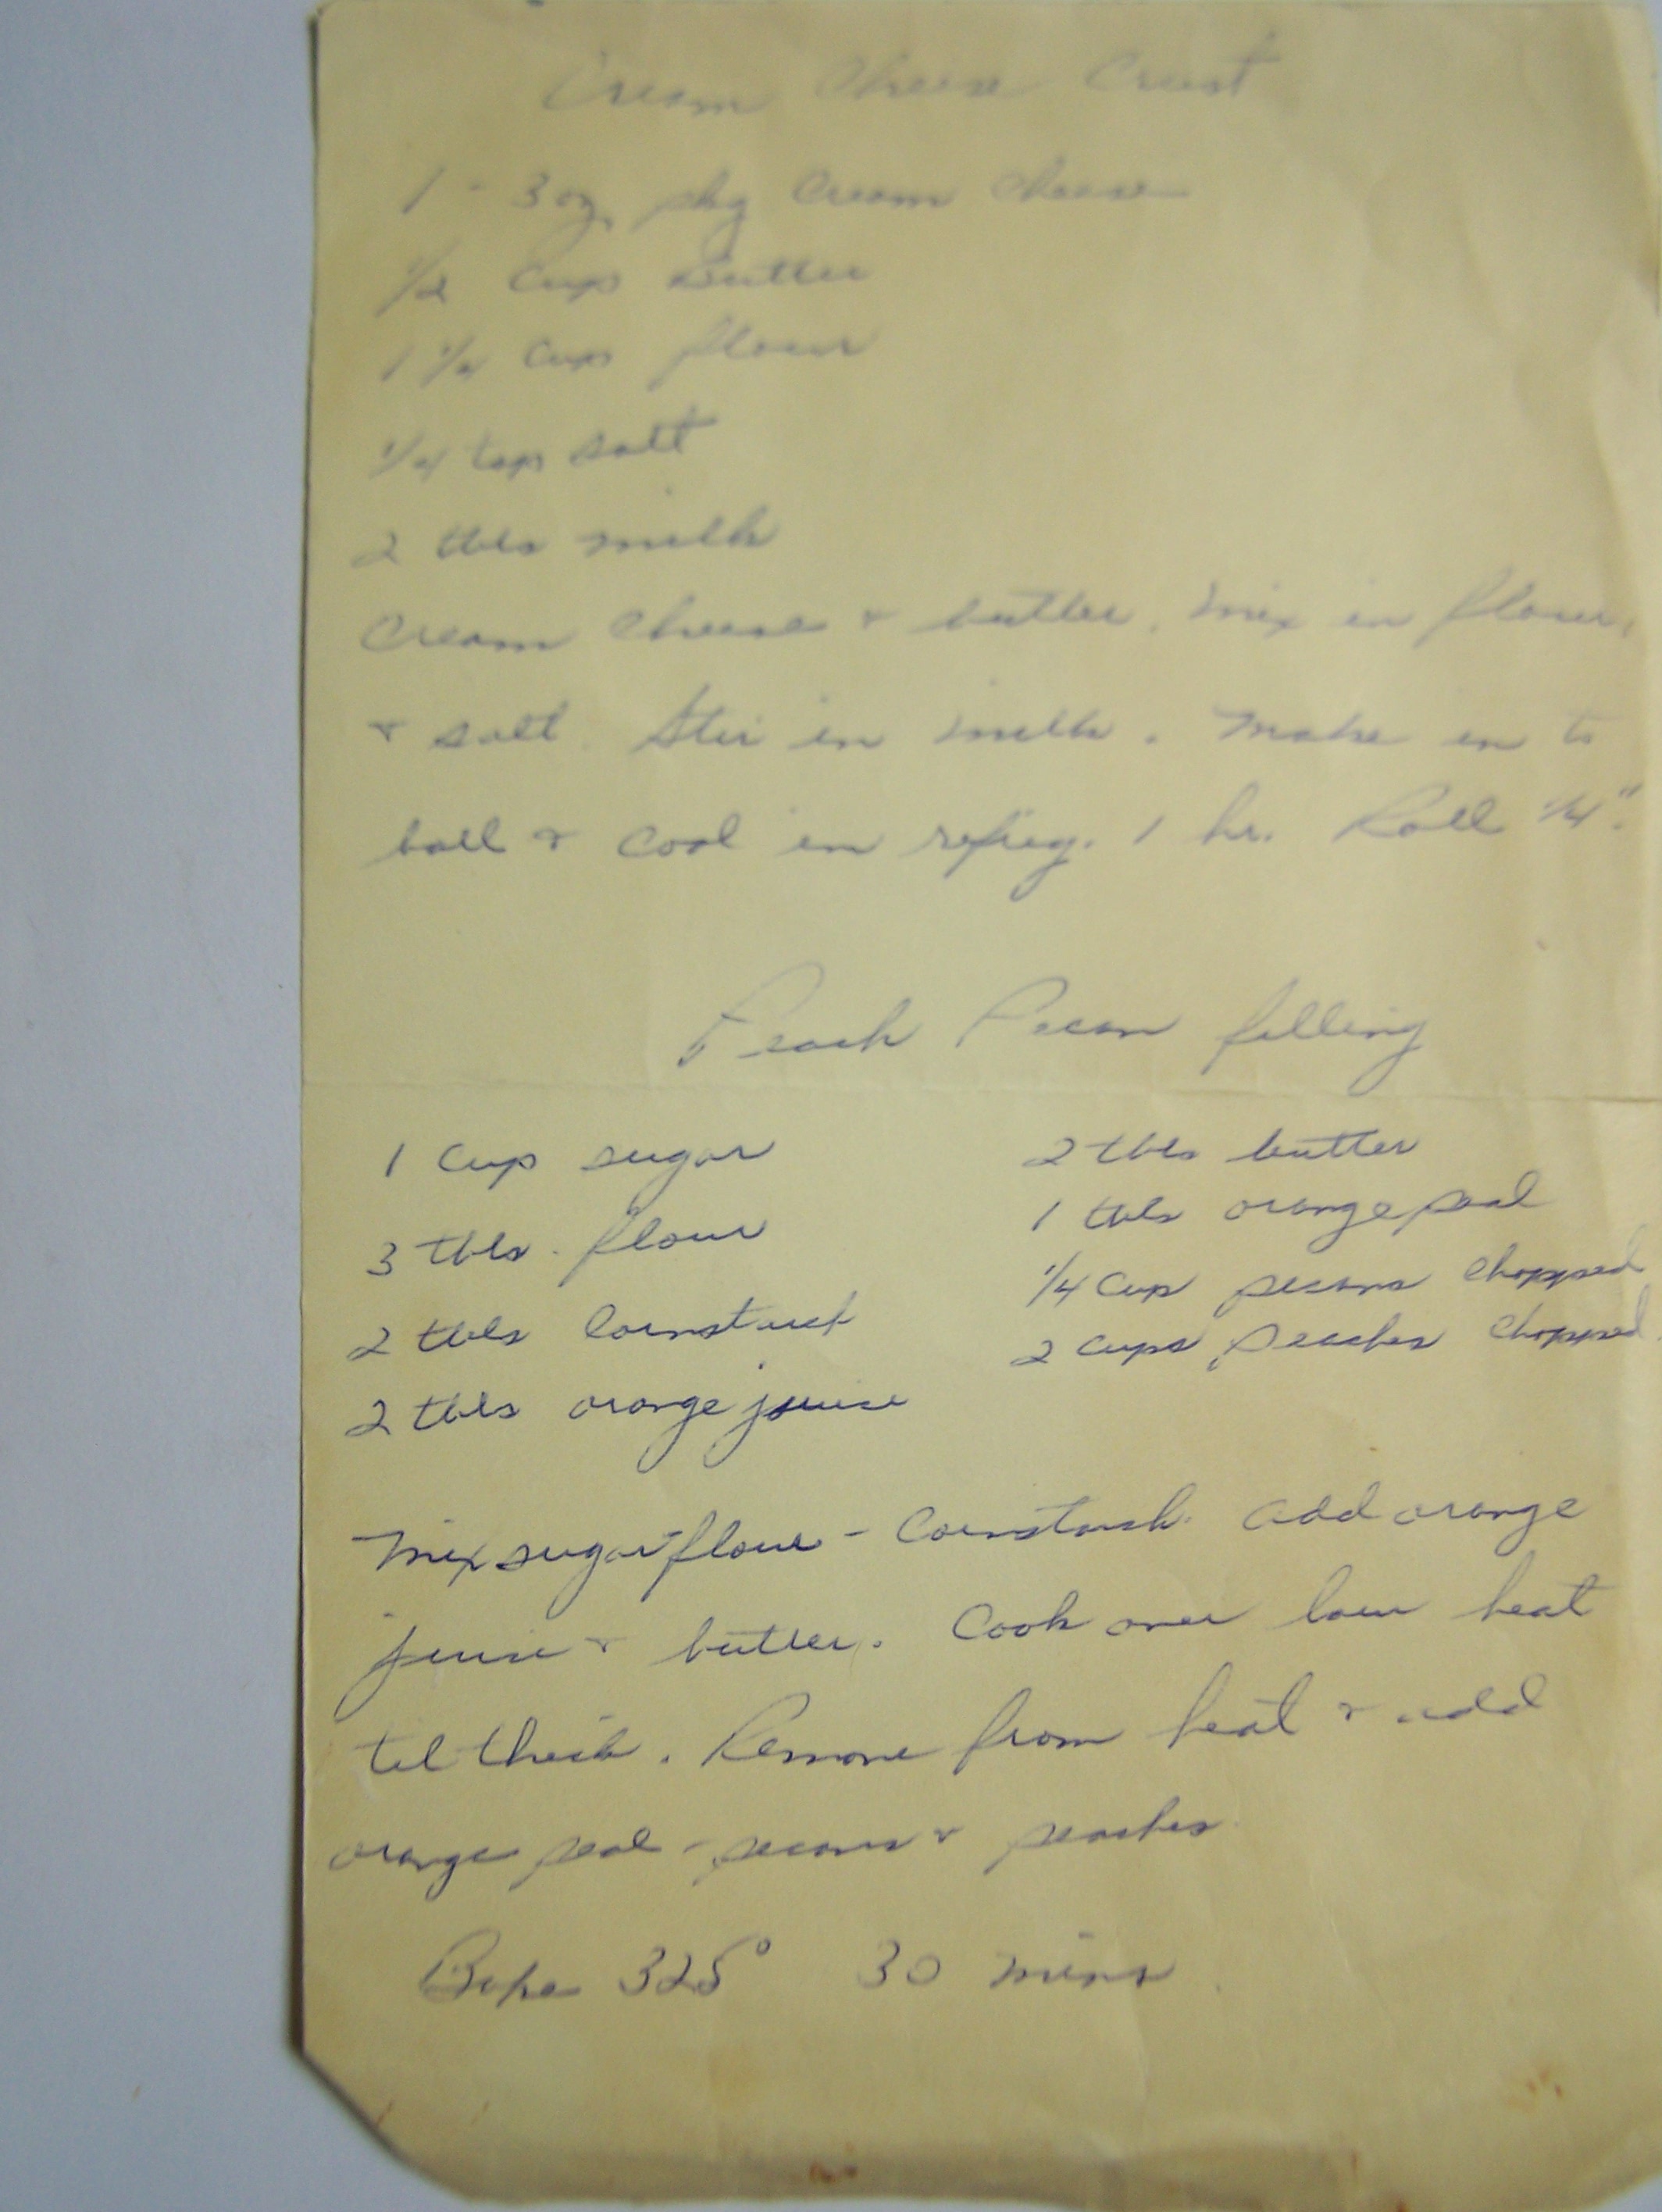 Cream Cheese Crust
1 - 3 oz. pkg Cream Cheese
1/2 Cup Butter
1 1/4 Cup flour
1/4 tsp salt
2 tbls milk
Cream Cheese & butter. Mix in flour,
& salt. Stir in milk. Make in to
ball & cool in refrig. 1 hr. Roll 1/4".
Peach Pecan filling
1 Cup sugar
3 tbls. flour
2 tbls Cornstarch
2 tbls orange juice
2 tbls butter
1 tbls orange peal
1/4 Cup pecans Chopped
2 Cups Peaches Chopped
Mix sugar - flour - Cornstarch. Add orange
juice & butter. Cook over low heat
til thick. Remove from heat & add
orange peal - pecans & peaches.
Bake 325° 30 mins.